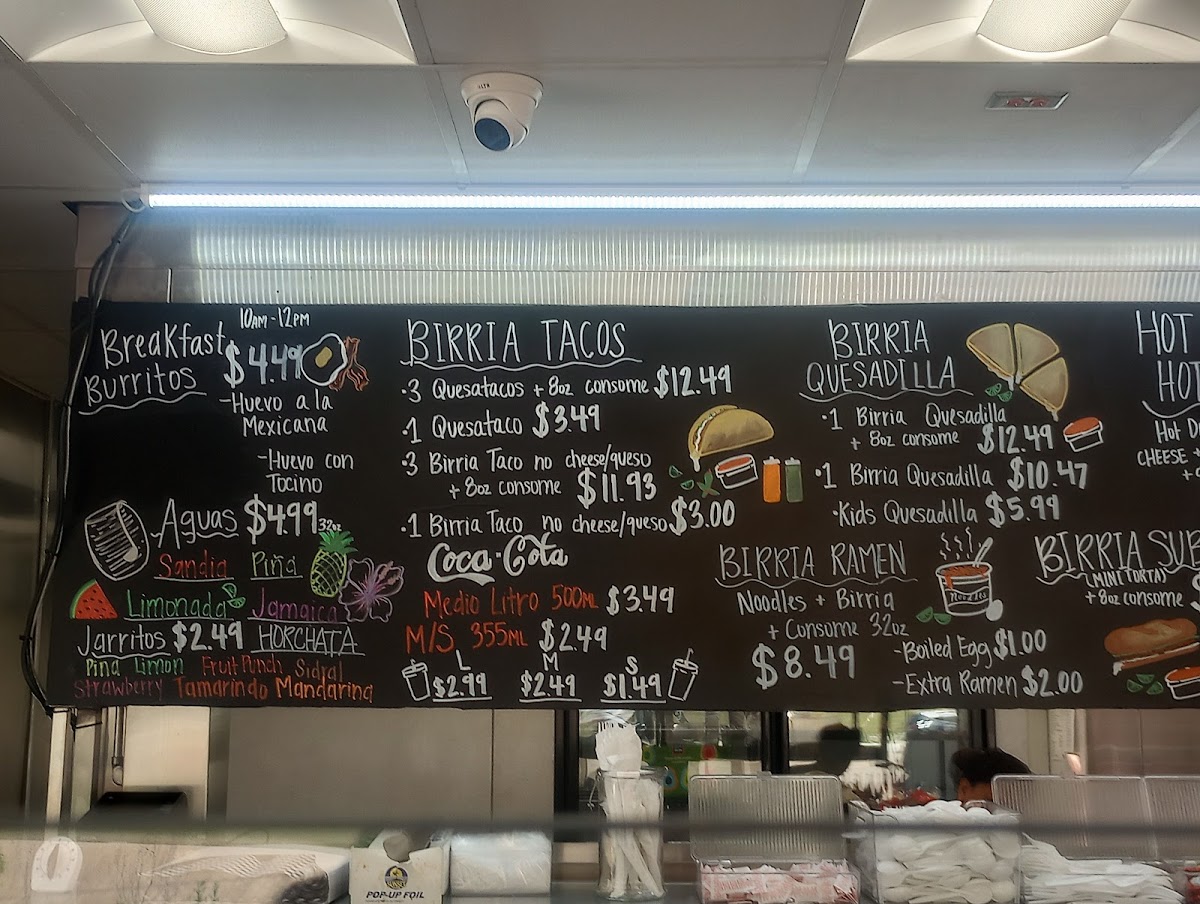 10AM-12PM
Breakfast
Burritos
$4.49
-Huevo a la
Mexicana
-Huevo con
Tocino
Aguas $4.99 32oz
Sandia Piña
Limonada Jamaica
Jarritos $2.49 HORCHATA
Piña Limon Fruit Punch Sidral
Strawberry Tamarindo Mandarina
BIRRIA TACOS
·3 Quesatacos + 8oz consome $12.49
·1 Quesataco $3.49
·3 Birria Taco no cheese/queso
+ 8oz consome $11.93
·1 Birria Taco no cheese/queso $3.00
Coca-Cola
Medio Litro 500ML $3.49
M/S 355ML $2.49
L M S
$2.99 $2.49 $1.49
BIRRIA
QUESADILLA
·1 Birria Quesadilla
+ 8oz consome $12.49
·1 Birria Quesadilla $10.47
·Kids Quesadilla $5.99
BIRRIA RAMEN
Noodles + Birria
+ Consome 32oz
$8.49
Noodles
-Boiled Egg $1.00
-Extra Ramen $2.00
HOT
HOT
Hot D
CHEESE +
+
BIRRIA SUB
(MINI TORTA)
+ 8oz consome
POP-UP FOIL